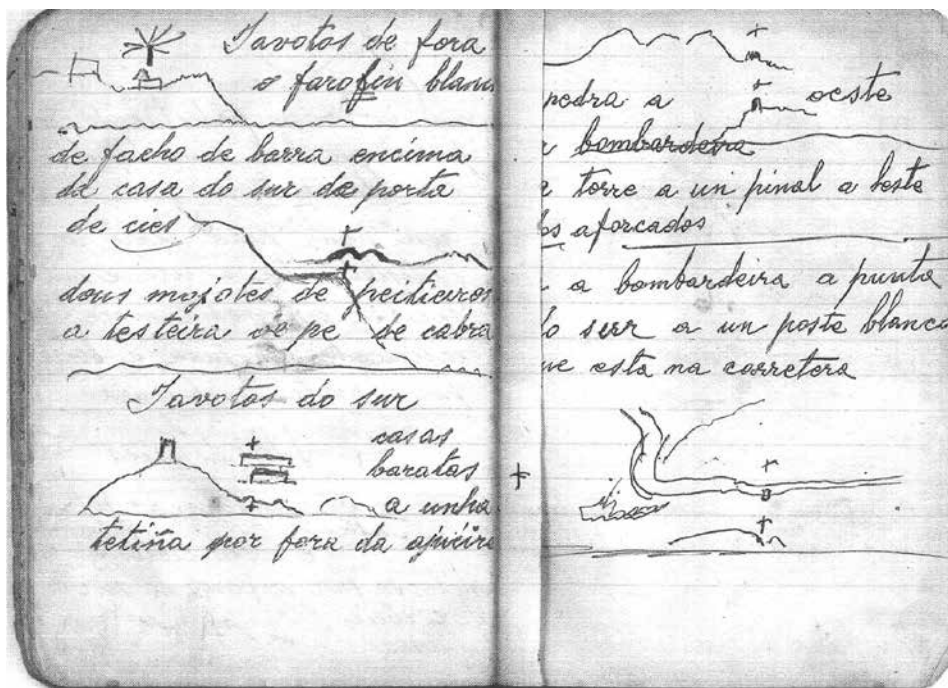 Tavotos de fora
o farofin blanc
de facho de barra encima
da casa do sur da porta
de cies
dous mojotes de
a testeira pe de cabra
Tavotos do sur
casas
baratas
a unha
tetiña por fora da
pedra a oeste
bombardeira
a torre a un pinal a leste
os aforcados
a bombardeira a punta
do surr a un poste blanco
ue esta na carretera